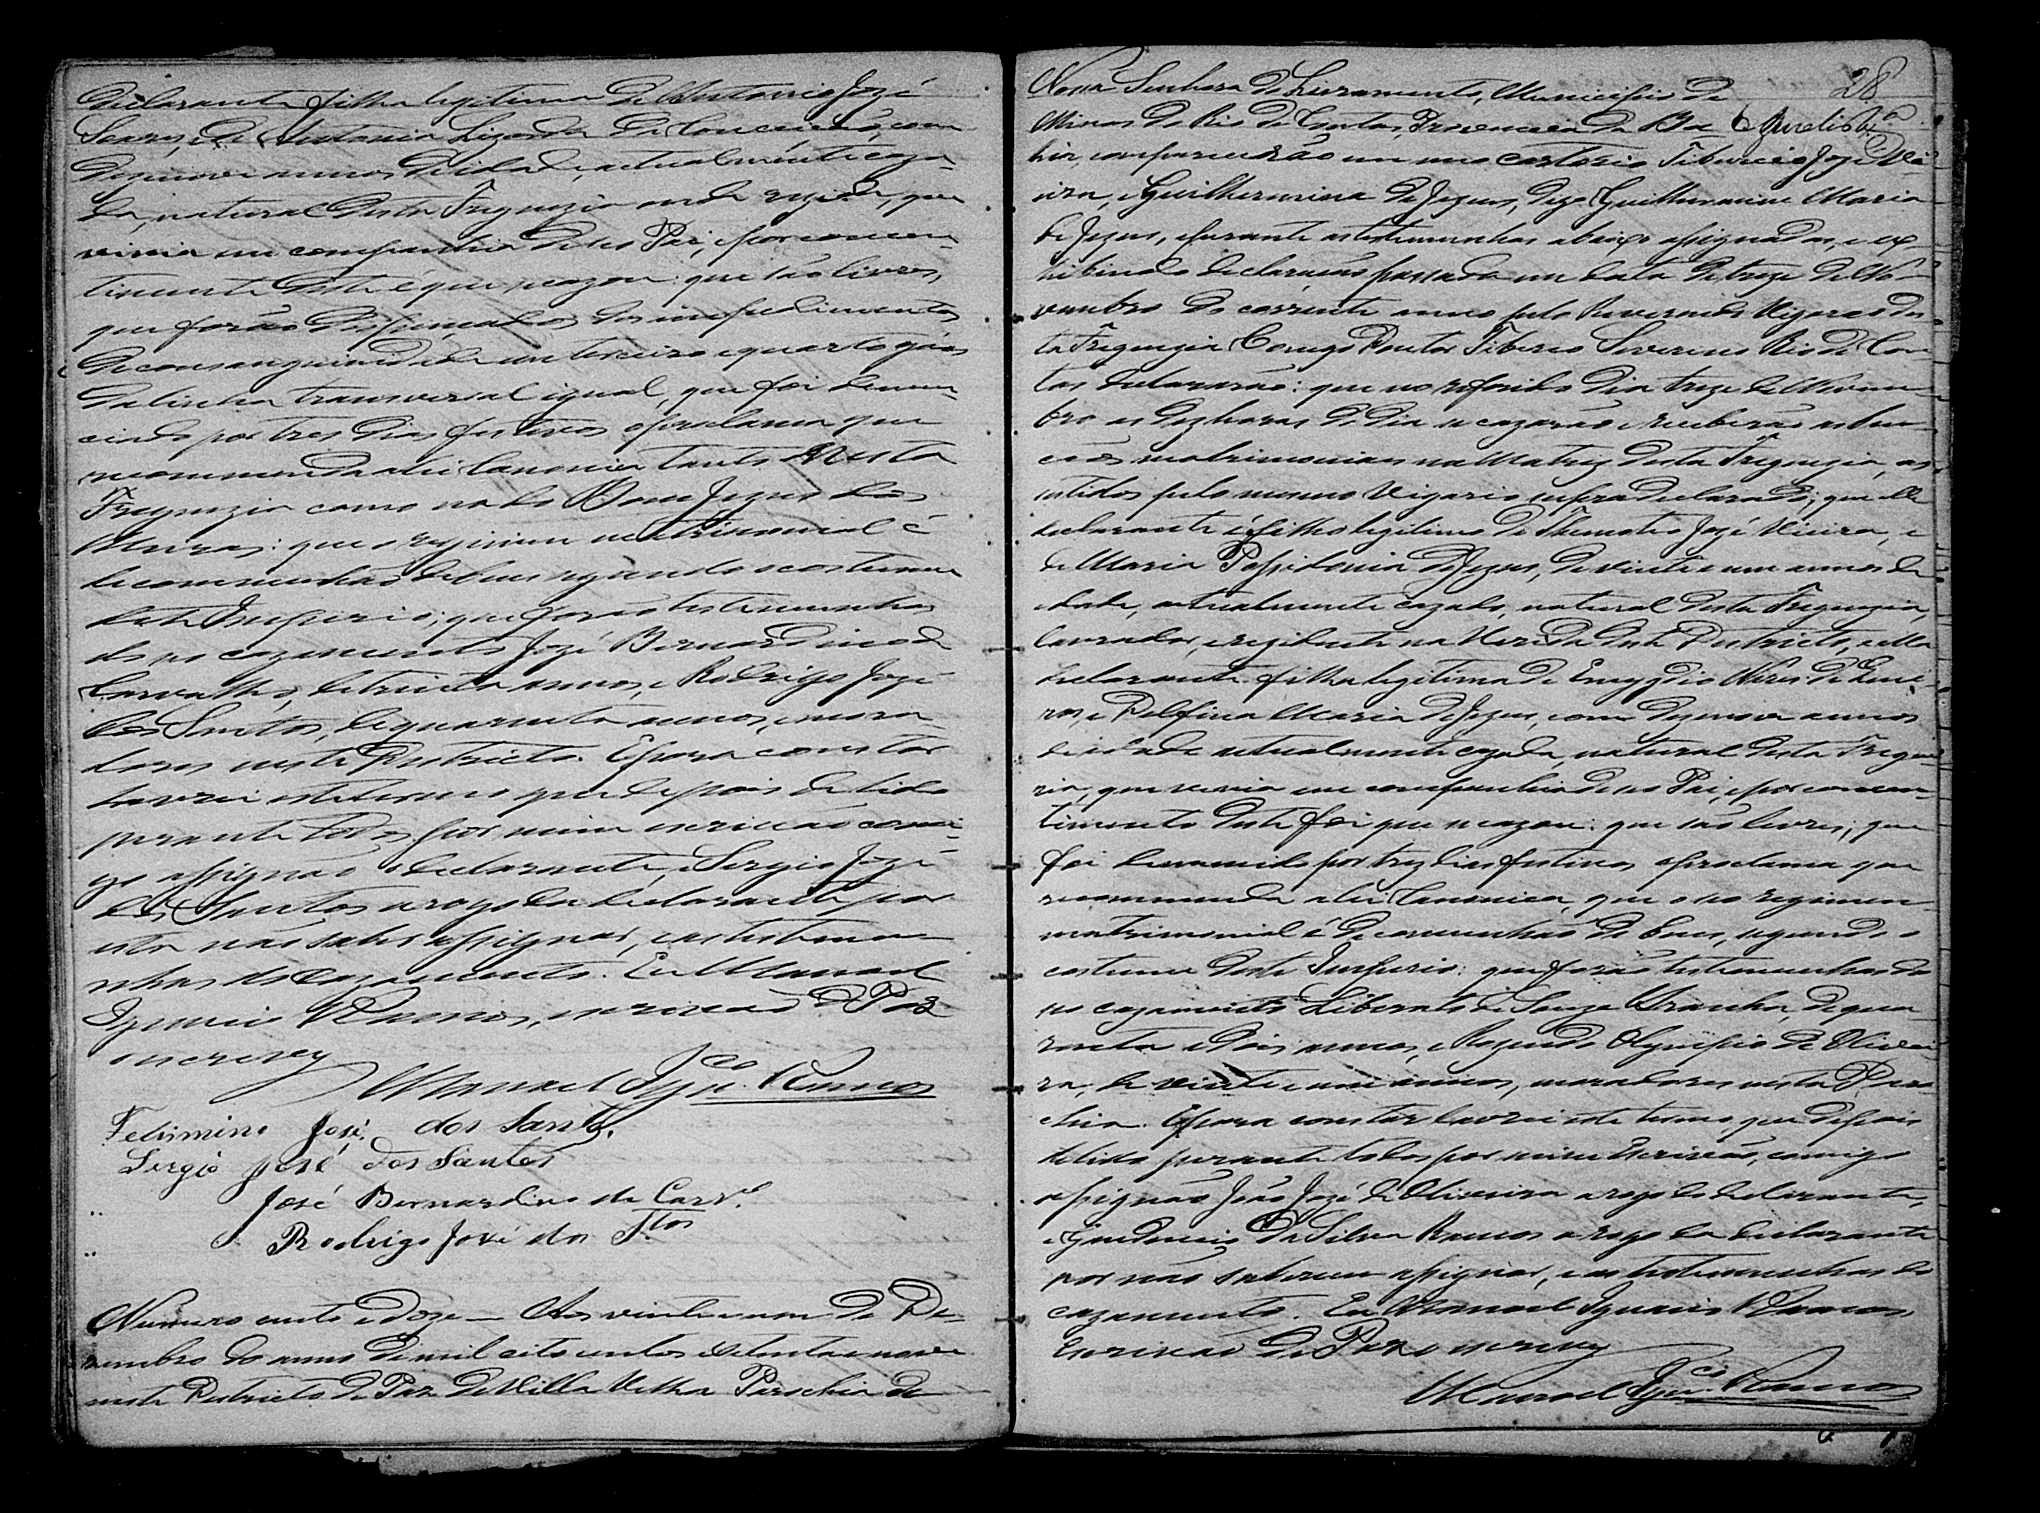 declarante filha legitima de Antonio José
Soares, e de Antonia Lizarda da Conceição, com
dezenove annos de idade, actualmente caza-
da, natural desta Freguezia onde rezide, que
vivia em companhia de seo Pai, e por concen-
timento deste é que se cazou: que são livres,
que forão dispençados dos impedimentos
de consanguinidade em terceiro e quarto gráos
da linha transversal igual, que foi denun-
ciado por tres dias festivos o proclama que
recommenda a lei Canonica tanto nesta
Freguezia como na do Bom Jezus dos
Meiras: que o regimen matrimonial é
de communhão de bens segundo o costume
deste Imperio; que forão testemunhas
do seo cazamento José Bernardino de
Carvalho, de trinta annos, e Rodrigo José
dos Santos, de quarenta annos, mora-
dores neste Districto. E para constar
lavrei este termo que depois de lido
perante todos por mim escrivão comi-
go assignão o declarante, e Sergio José
dos Santos a rogo da declarante por
esta não saber assignar, e as testemu-
nhas do cazamento. Eu Manoel
Ignacio Ramos, escrivão de Paz
o escrevy
Manoel Ignco. Ramos
Felismino José dos Santos.
Sergio José dos Santos
José Bernardino de Carvo.
Rodrigo José dos Stos
Numero cento e doze — Aos vinte e um de De-
zembro do anno de mil oito centos e setenta e nove
neste Districto de Paz de Villa Velha Parochia de
28
Nossa Senhora do Livramento, Municipio de
Minas do Rio de Contas, Provincia da Ba-
hia, comparecerão em meo cartorio Tiburcio José Vi-
eira, e Guilhermina de Jezus, digo Guilhermina Maria
de Jezus, e perante as testemunhas abaixo assignadas, e ex-
hibindo declaração passada em data de treze de No-
vembro do corrente anno pelo Reverendo Vigario des-
ta Freguezia Conego Doutor Tiberio Severino Rio de Con-
tas declararão: que no referido dia treze de Novem-
bro as dez horas do dia se cazarão e receberão as ben-
çãos matrimoniaes na Matriz desta Freguezia, as-
sistidos pelo mesmo Vigario supra declarado; que elle
declarante é filho legitimo de Themotio José Vieira, e
de Maria Possidonia de Jezus, de vinte e um annos de
idade, actualmente cazado, natural desta Freguezia,
lavrador, e rezidente na Vereda deste Districto, e ella
declarante filha legitima de Emygdio Neres de
e Delfina Maria de Jezus, com dezenove annos
de idade actualmente cazada, natural desta Fregue-
zia, que vivia em companhia de seo Pai, e por concen-
timento deste foi que se cazou: que são livres; que
foi denunciado por trez dias festivos o proclama que
recommenda a lei Canonica, que o seo regimen
matrimonial é de communhão de bens, segundo o
costume deste Imperio: que forão testemunhas do
seo cazamento Liberato de Souza Aranha, de qua-
renta e dois annos, e Rozendo Olympio de Olivei-
ra, de vinte e um annos, moradores nesta Paro-
chia. E para constar lavrei este termo que depois
de lido perante todos por mim Escrivão, comigo
assignão João José de Oliveira a rogo do declarante,
e Gaudencio da Silva Ramos a rogo da declarante
por não saberem assignar, e as testemunhas do
cazamento. Eu Manoel Ignacio Ramos
Escrivão de Paz o escrevy
Manoel Ignco. Ramos